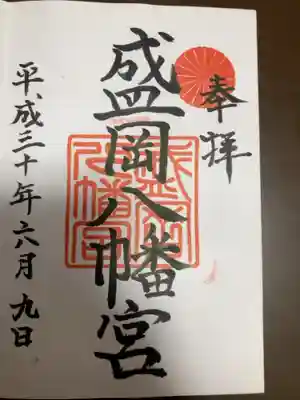 奉拝
盛岡八幡宮
平成三十年六月九日